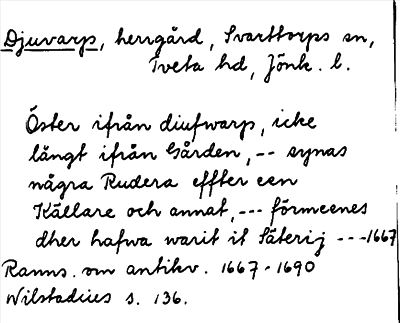 Djuvarp, herrgård, Svarttorps sn,
Tveta hd, Jönk. l.
Öster ifrån diufwarp, icke
långt ifrån Gården, -- synas
några Rudera effter een
Källare och annat, --- förmeenes
dher hafwa warit it Säterij --- 1667
Ranns. om antikv. 1667-1690
Wilstadius s. 136.